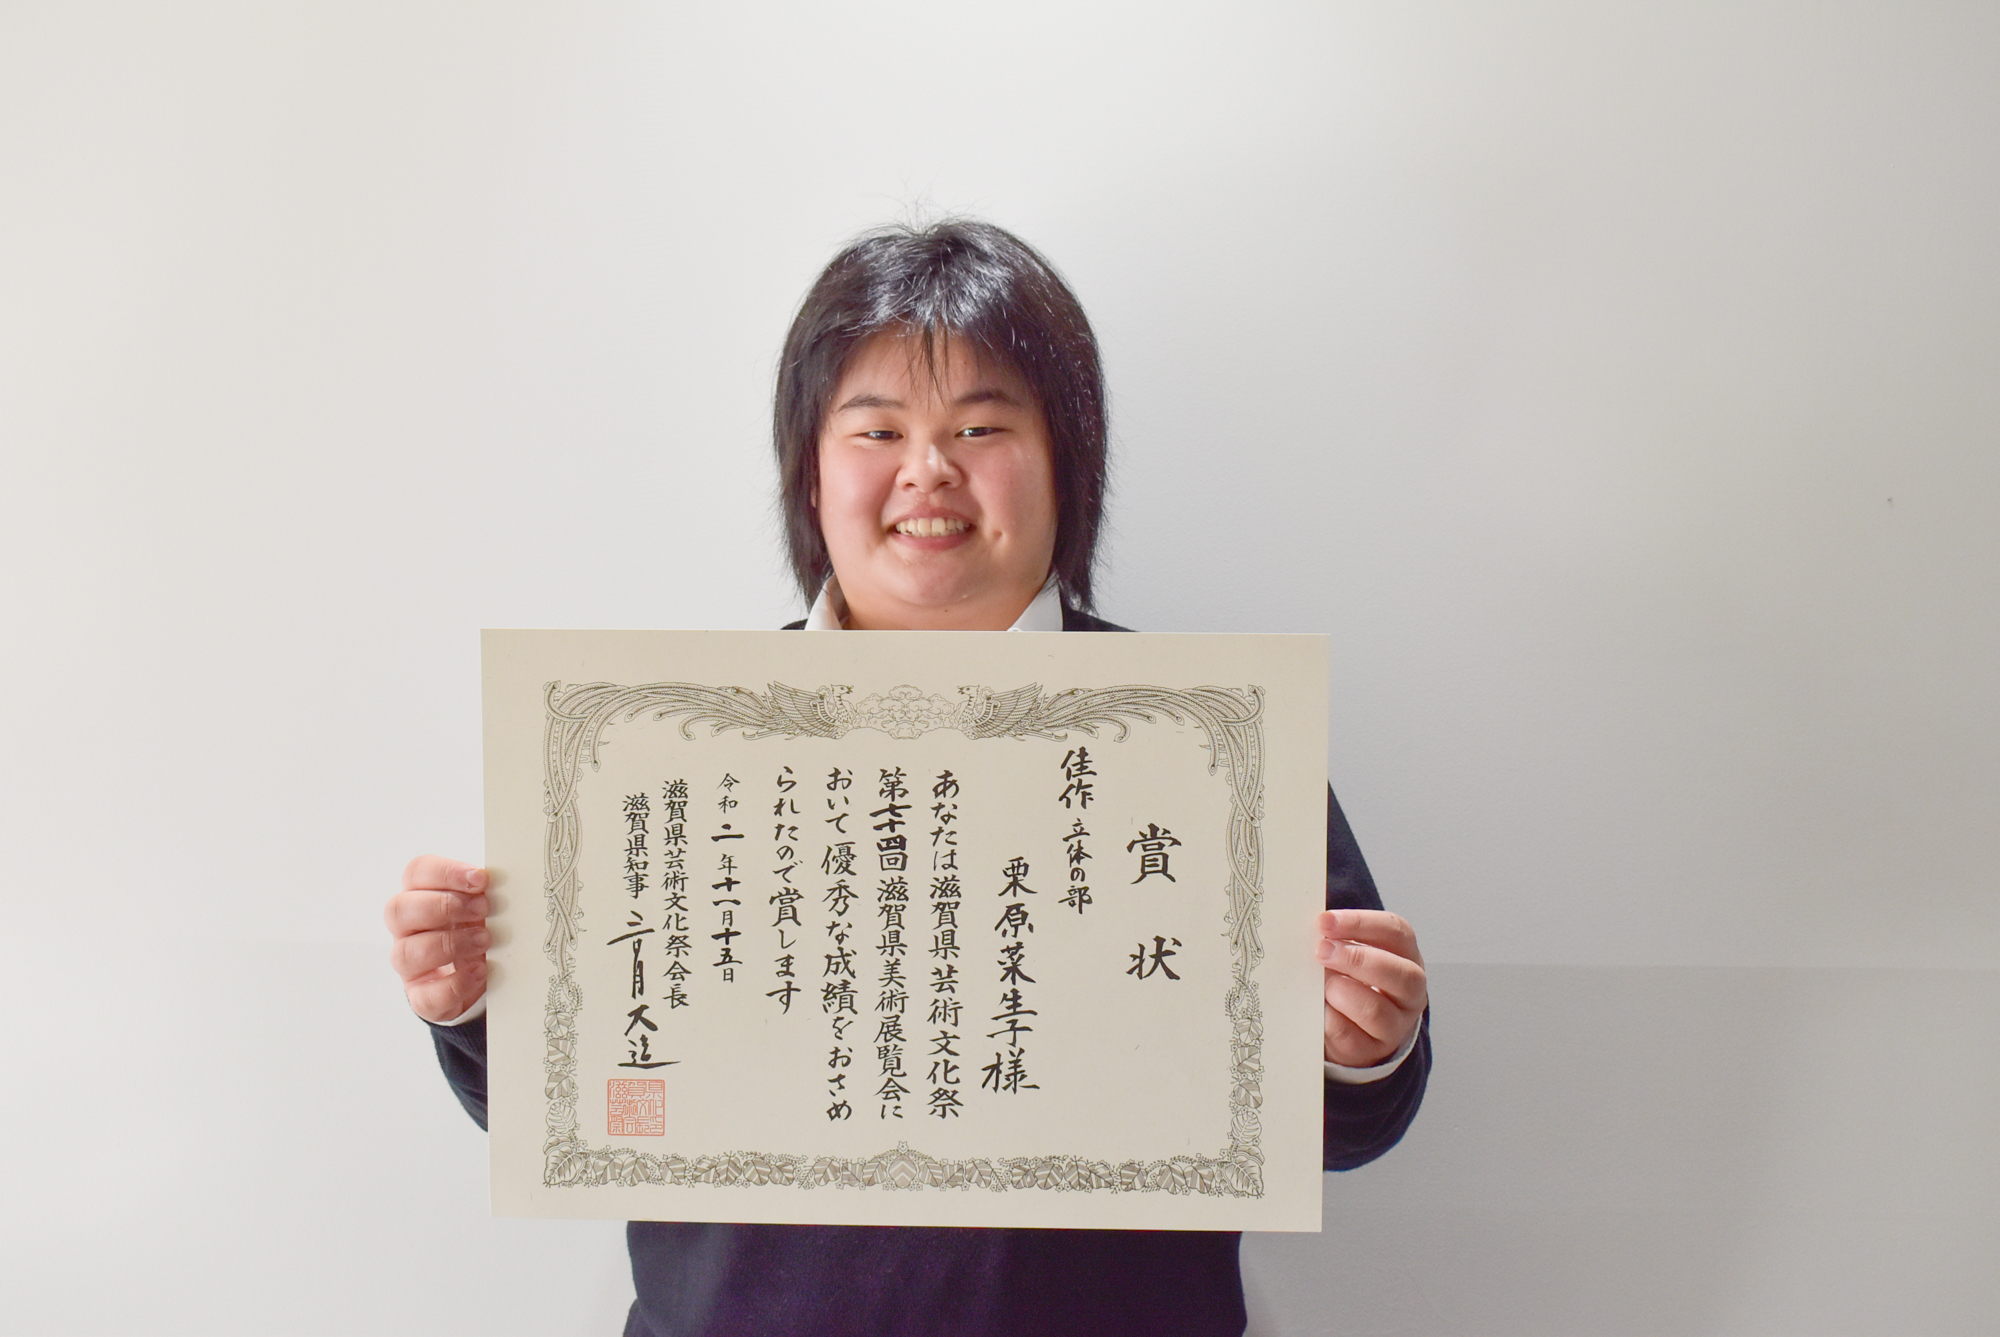 賞状
佳作 立体の部
栗原菜生子様
あなたは滋賀県芸術文化祭
第七十四回滋賀県美術展覧会に
おいて優秀な成績をおさめ
られたので賞します
令和二年十一月十五日
滋賀県芸術文化祭会長
滋賀県知事 三日月大造